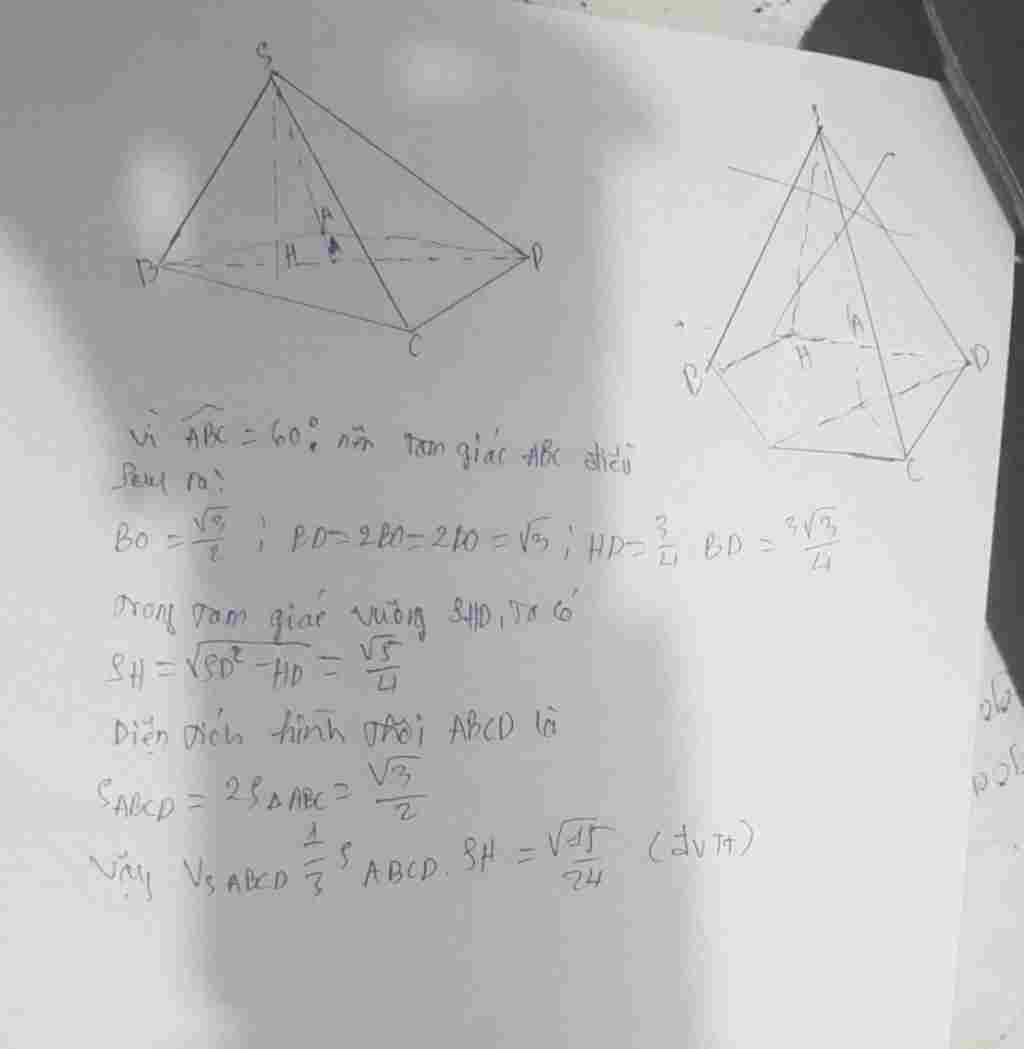 S
B H A D
C
S
B H A D
C
Vì ABC = 60° nên tam giác ABC đều
Suy ra:
BO = √3/2 ; BD = 2BO = 2BO = √3 ; HD = 3/4 BD = 3√3/4
Trong tam giác vuông SHD, ta có
SH = √(SD² - HD) = √5/4
Diện tích hình thoi ABCD là
S_ABCD = 2S_ΔABC = √3/2
Vậy V_SABCD 1/3 S_ABCD. SH = √15/24 (đvtt)